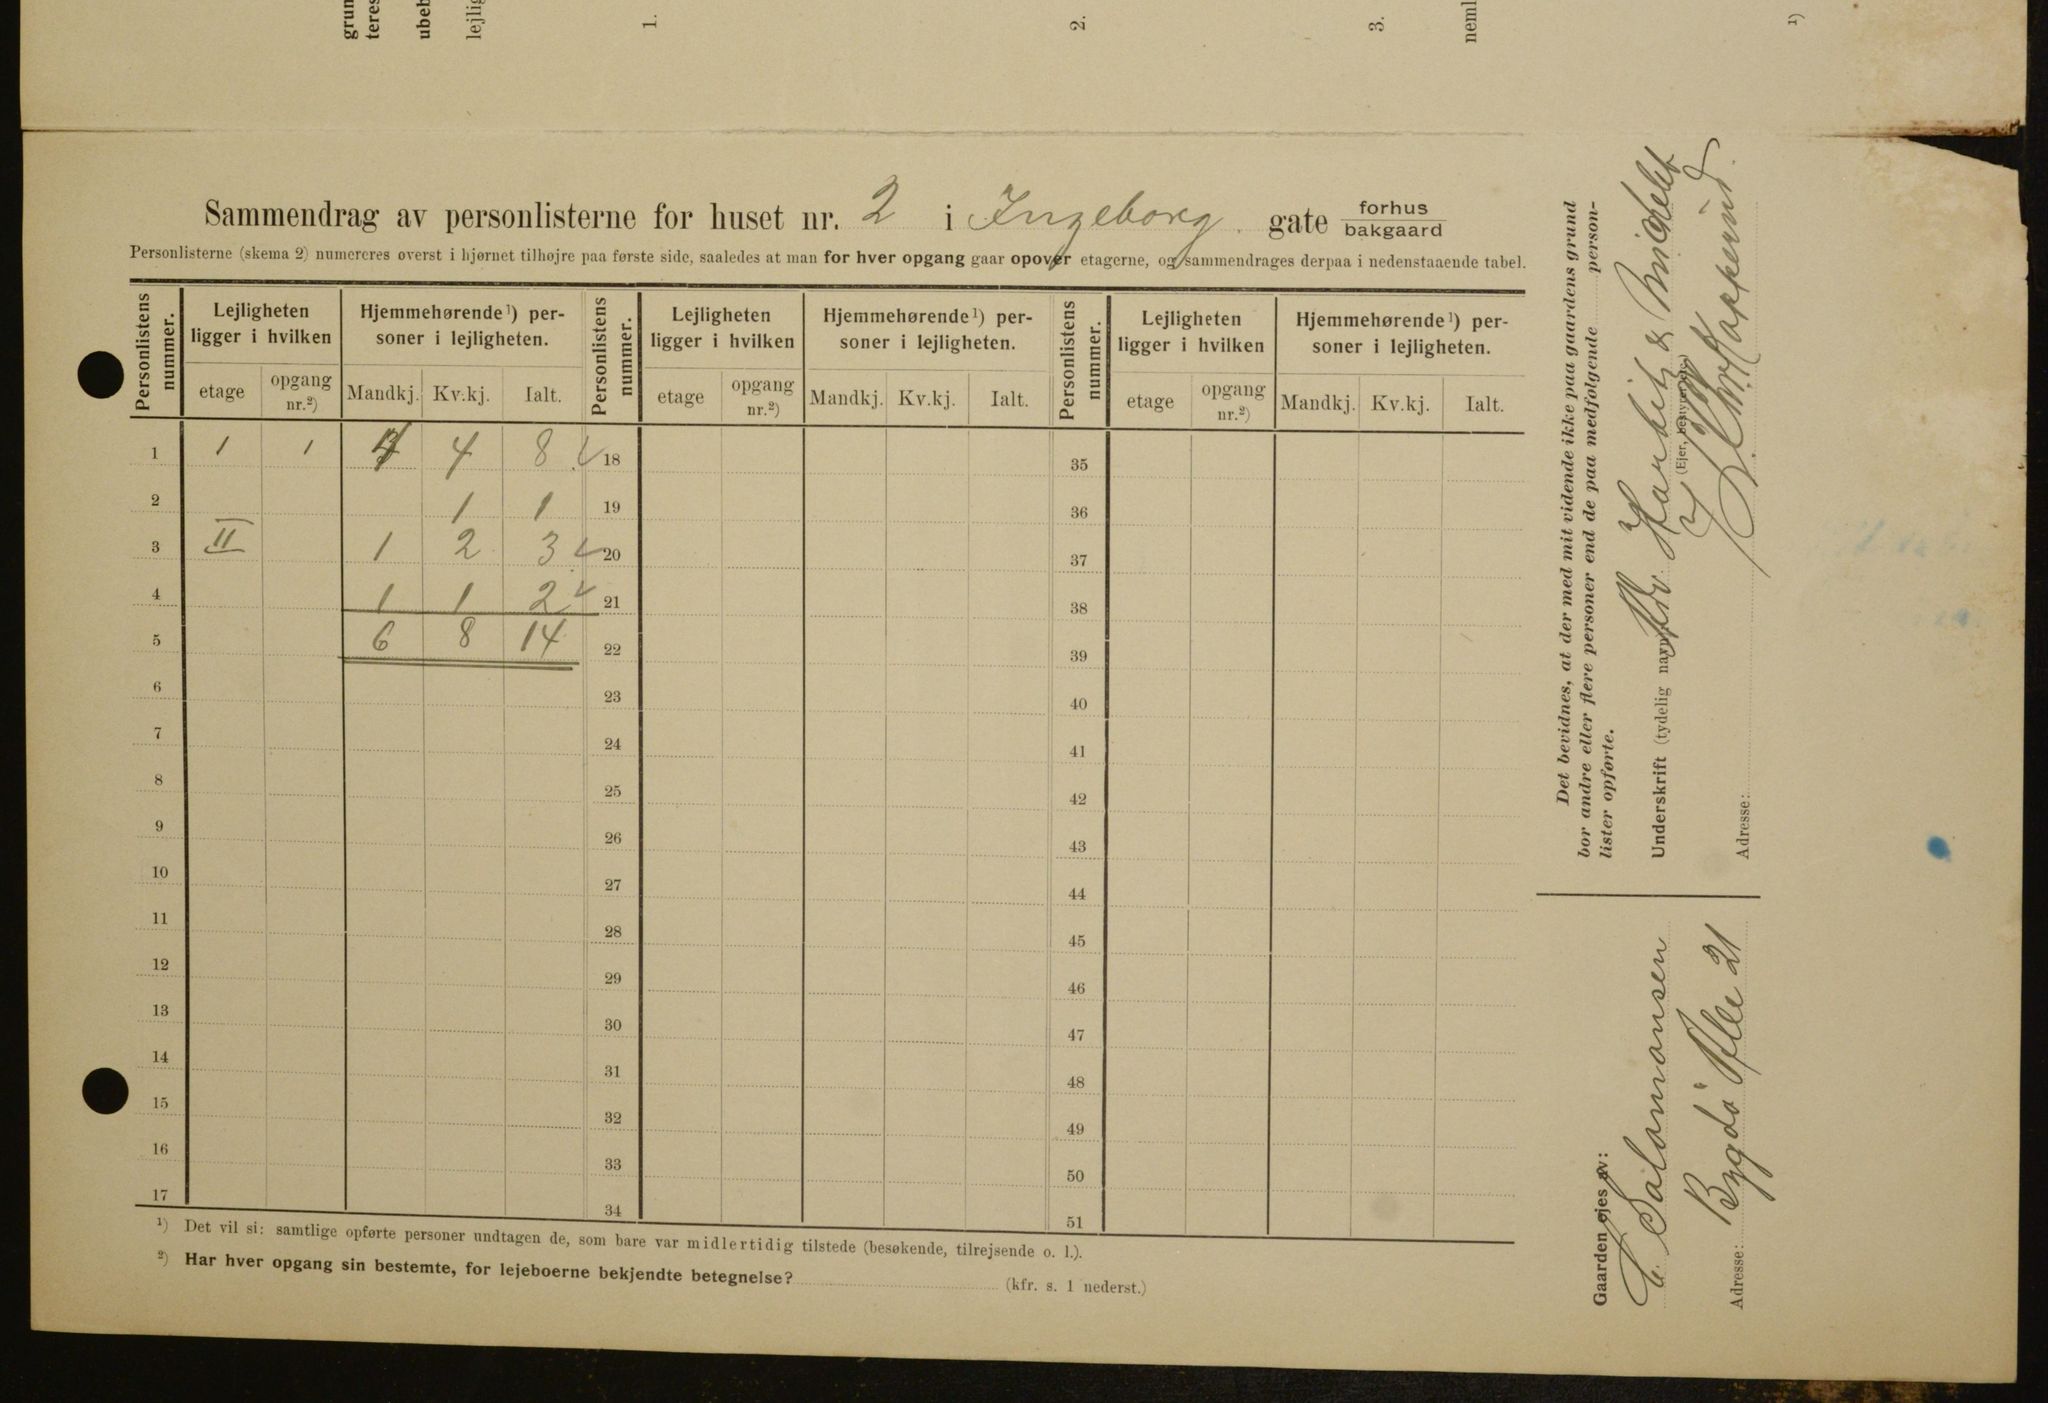 grun
teres
ubeb
lejlig
1.
2.
3.
neml
1)
Sammendrag av personlisterne for huset nr. 2 i Ingeborg gate forhus
bakgaard
Personlisterne (skema 2) numereres øverst i hjørnet tilhøjre paa første side, saaledes at man for hver opgang gaar opover etagerne, og sammendrages derpaa i nedenstaaende tabel.
Personlistens nummer. Lejligheten ligger i hvilken Hjemmehørende 1) personer i lejligheten. Personlistens nummer. Lejligheten ligger i hvilken Hjemmehørende 1) personer i lejligheten. Personlistens nummer. Lejligheten ligger i hvilken Hjemmehørende 1) personer i lejligheten.
etage opgang nr.2) Mandkj. Kv.kj. Ialt. etage opgang nr.2) Mandkj. Kv.kj. Ialt. etage opgang nr.2) Mandkj. Kv.kj. Ialt.
1 1 1 4 4 8 18 35
2 1 1 19 36
3 II 1 2 3 20 37
4 1 1 2 21 38
5 6 8 14 22 39
6 23 40
7 24 41
8 25 42
9 26 43
10 27 44
11 28 45
12 29 46
13 30 47
14 31 48
15 32 49
16 33 50
17 34 51
1) Det vil si: samtlige opførte personer undtagen de, som bare var midlertidig tilstede (besøkende, tilrejsende o. l.).
2) Har hver opgang sin bestemte, for lejeboerne bekjendte betegnelse? (kfr. s. 1 nederst.)
Det bevidnes, at der med mit vidende ikke paa gaardens grund
bor andre eller flere personer end de paa medfølgende person-
lister opførte.
Underskrift (tydelig navn):
(Ejer, bestyrer etc.)
Adresse:
Gaarden ejes av:
C. Salomonsen
Adresse: Bygdø Alle 21